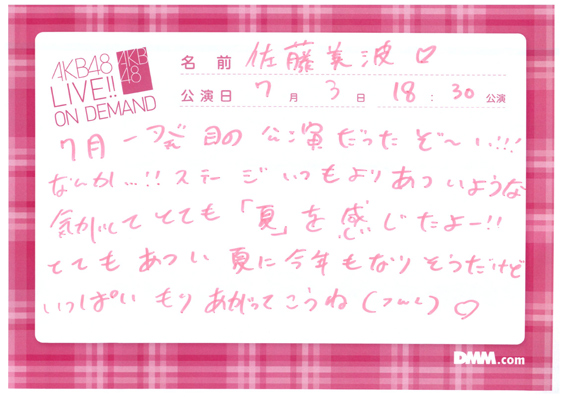 AKB48
LIVE!!
ON DEMAND
AKB
48
名前 佐藤美波♡
公演日 7月3日 18:30公演
7月一発目の公演だったぞ〜い!!!
なんか…!!ステージいつもよりあついような
気がしてとても「夏」を感じたよー!!
とてもあつい夏に今年もなりそうだけど
いっぱいもりあがってこうね(つωし)♡
DMM.com